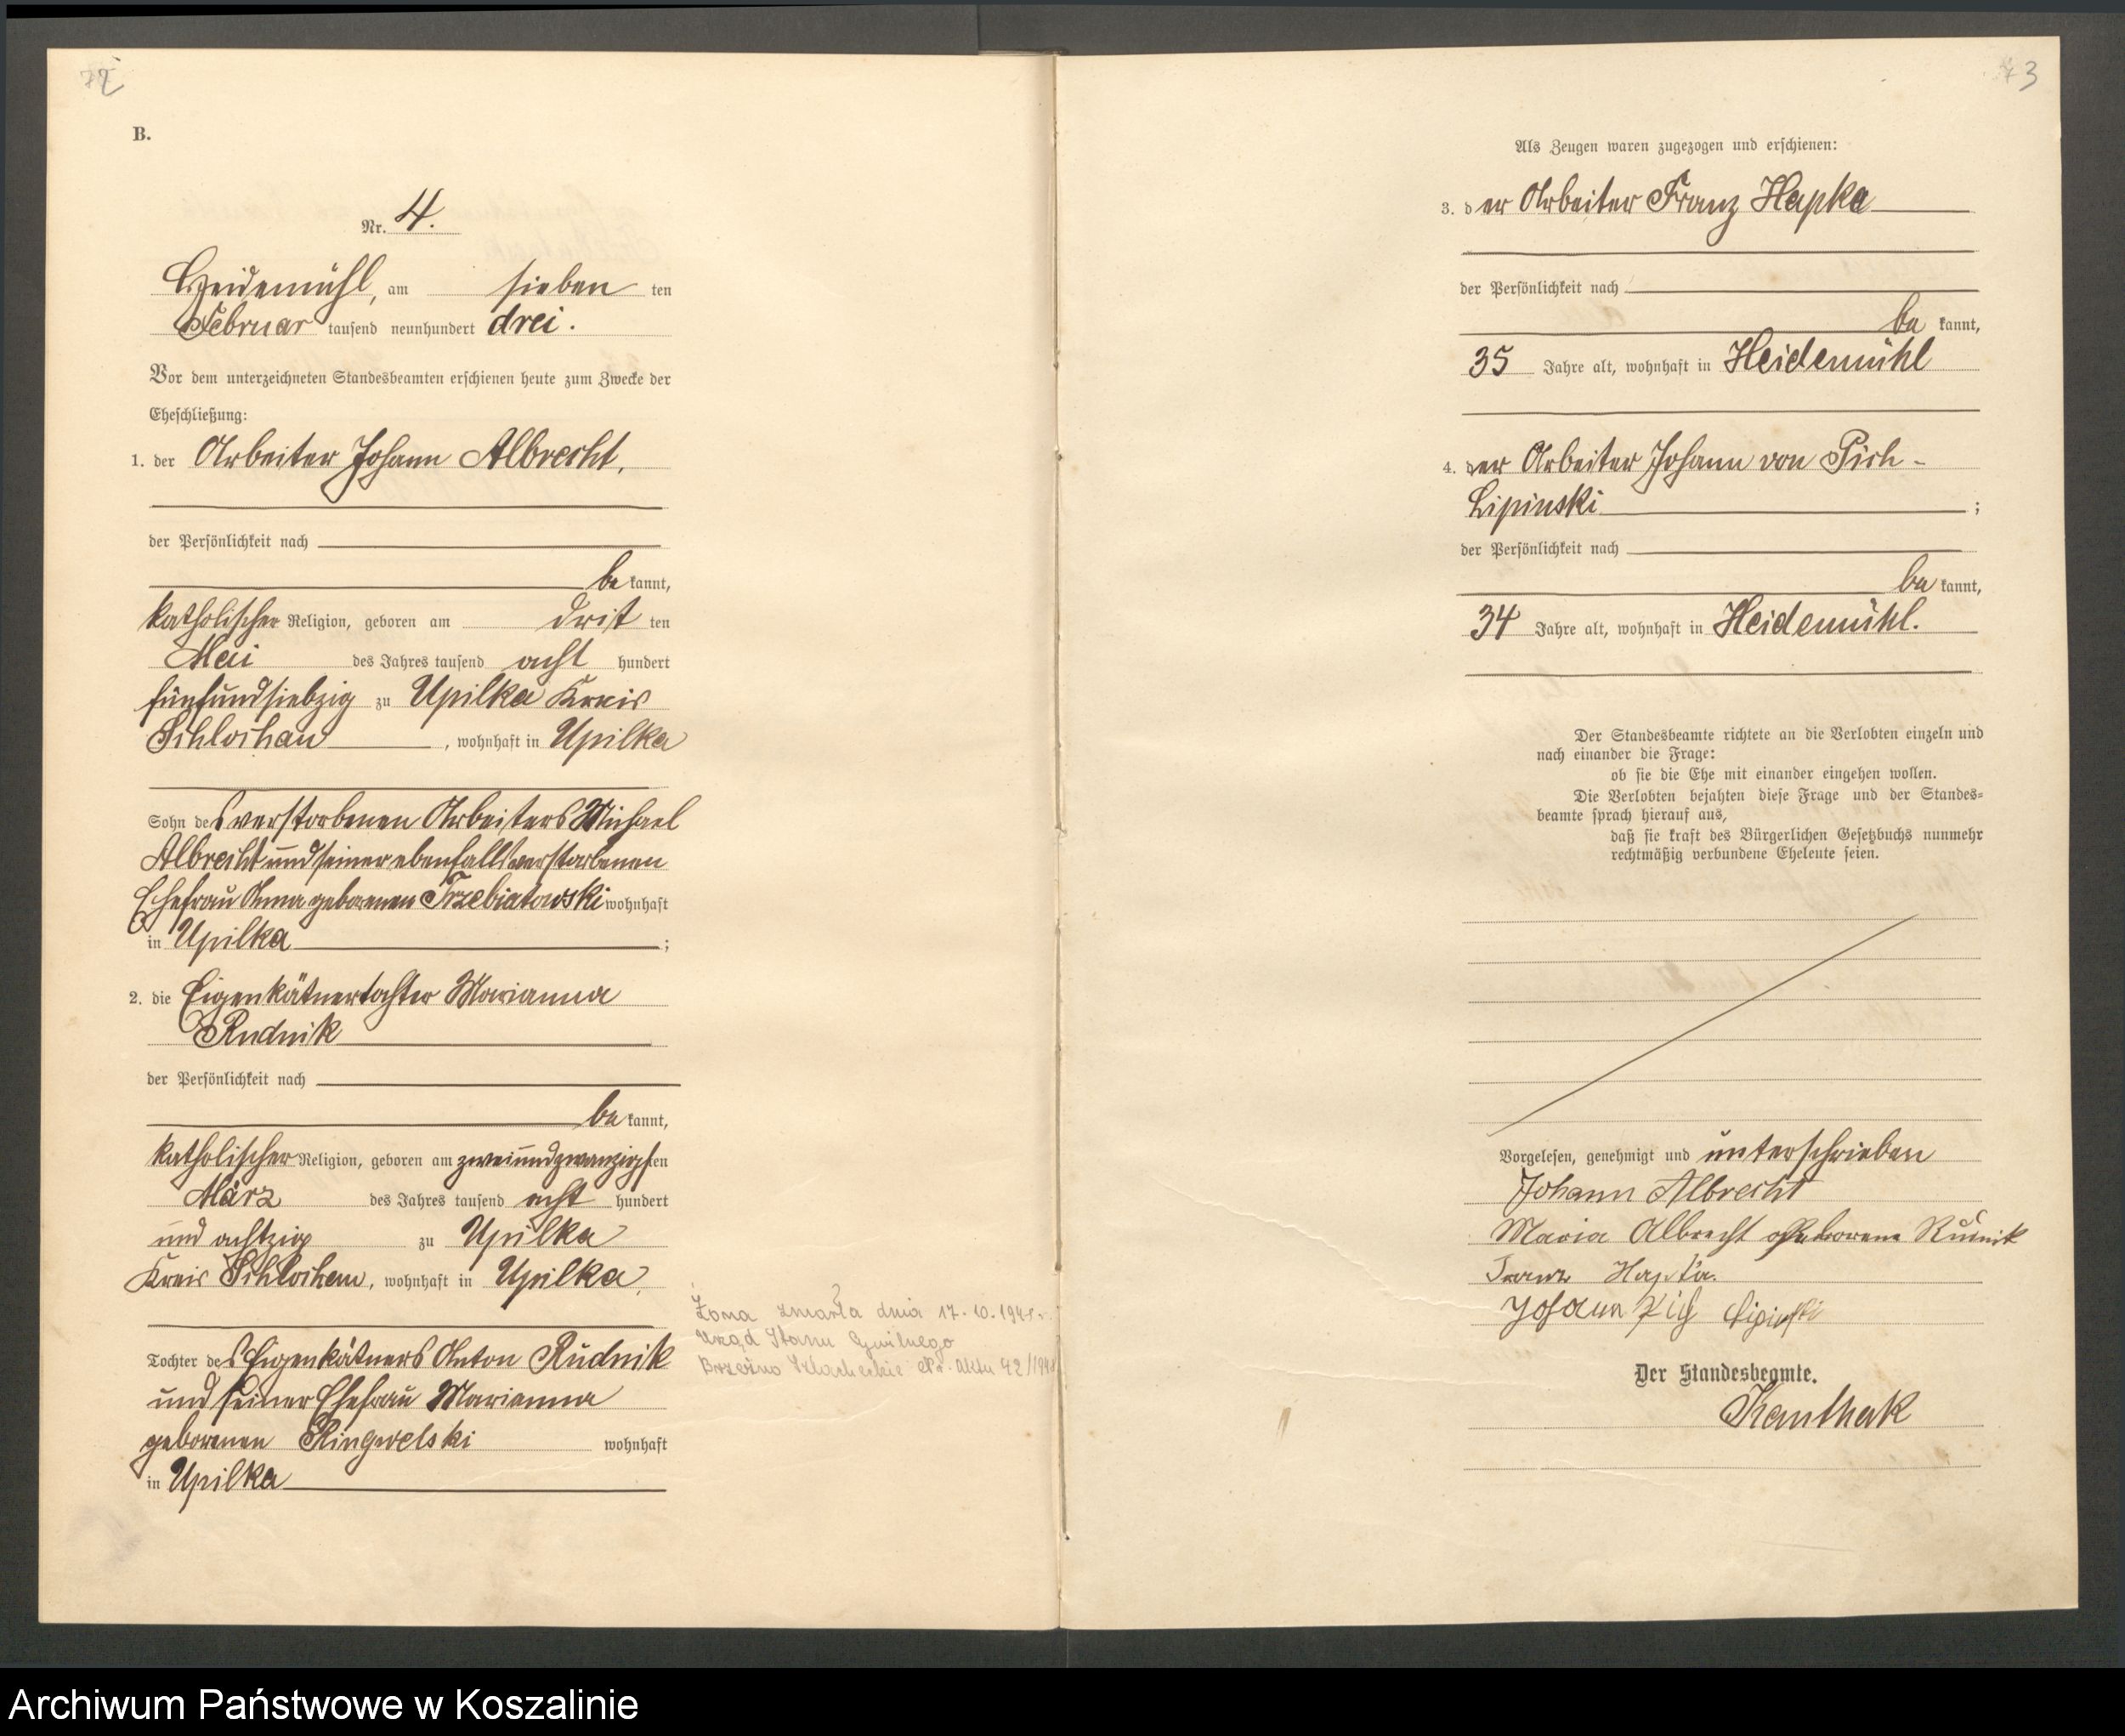 72
B.
Nr. 4.
Heidemühl, am sieben ten
Februar tausend neunhundert drei.
Vor dem unterzeichneten Standesbeamten erschienen heute zum Zwecke der
Eheschließung:
1. der Arbeiter Johann Albrecht,
der Persönlichkeit nach
be kannt,
katholischer Religion, geboren am drit ten
Mai des Jahres tausend acht hundert
fünfundsiebzig zu Upilka Kreis
Schlochau, wohnhaft in Upilka
Sohn des verstorbenen Arbeiters Michael
Albrecht und seiner ebenfalls verstorbenen
Ehefrau Anna geborenen Trzebiatowski wohnhaft
in Upilka ;
2. die Eigenkätnertochter Marianna
Rudnik
der Persönlichkeit nach
be kannt,
katholischer Religion, geboren am zweiundzwanzigsten
März des Jahres tausend acht hundert
und achtzig zu Upilka
Kreis Schlochau, wohnhaft in Upilka,
Tochter des Eigenkätners Anton Rudnik
und seiner Ehefrau Marianna
geborenen Ringwelski wohnhaft
in Upilka
Żona zmarła dnia 17.10.
Urząd Stanu Cywilnego
Brzeźno Szlacheckie Nr. aktu 42/
73
Als Zeugen waren zugezogen und erschienen:
3. der Arbeiter Franz Hapka
der Persönlichkeit nach
be kannt,
35 Jahre alt, wohnhaft in Heidemühl
4. der Arbeiter Johann von Pich-
Lipinski ;
der Persönlichkeit nach
be kannt,
34 Jahre alt, wohnhaft in Heidemühl.
Der Standesbeamte richtete an die Verlobten einzeln und
nach einander die Frage:
ob sie die Ehe mit einander eingehen wollen.
Die Verlobten bejahten diese Frage und der Standes-
beamte sprach hierauf aus,
daß sie kraft des Bürgerlichen Gesetzbuchs nunmehr
rechtmäßig verbundene Eheleute seien.
Vorgelesen, genehmigt und unterschrieben
Johann Albrecht
Maria Albrecht geborene Rudnik
Franz Hapka.
Johann Pich Lipinski
Der Standesbeamte.
Kanthak
Archiwum Państwowe w Koszalinie